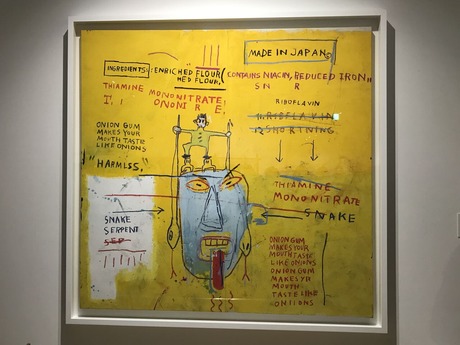 MADE IN JAPAN
INGREDIENTS: ENRICHED FLOUR (
CONTAINS NIACIN, REDUCED IRON,,
S N R
THIAMINE MONONITRATE!
ONONI R E!
RIBOFLAVIN
ONION GUM
MAKES YOUR
MOUTH TASTE
LIKE ONIONS
"HARMLSS,"
THIAMINE
MONONITRATE
SNAKE
SERPENT
SEP
SNAKE
ONION GUM
MAKES YOUR
MOUTH TASTE
LIKE ONIONS
ONION GUM
MAKES YR
MOUTH
TASTE LIKE
ONIIONS